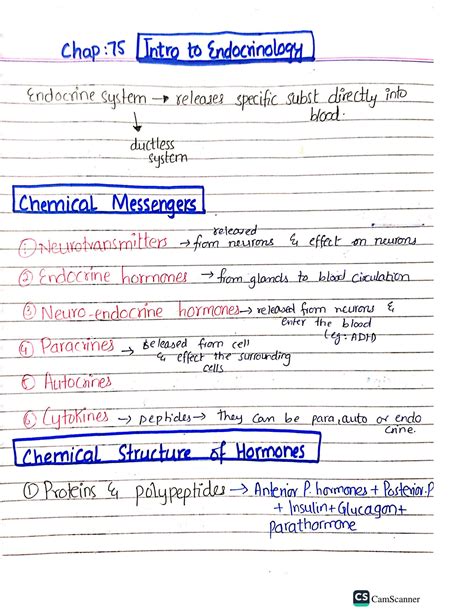 Chap:75 Intro to Endocrinology
Endocrine system → releases specific subst directly into
blood.
↓
ductless
system
Chemical Messengers
① Neurotransmitters → released from neurons & effect on neurons
② Endocrine hormones → from glands to blood circulation
③ Neuro-endocrine hormones → released from neurons &
enter the blood
(eg: ADH)
④ Paracrines → Released from cell
& effect the surrounding
cells
⑤ Autocrines
⑥ Cytokines → peptides → they can be para, auto or endo
crine.
Chemical Structure of Hormones
① Proteins & polypeptides → Anterior P. hormones + Posterior.P
+ Insulin + Glucagon +
parathormone
CS CamScanner